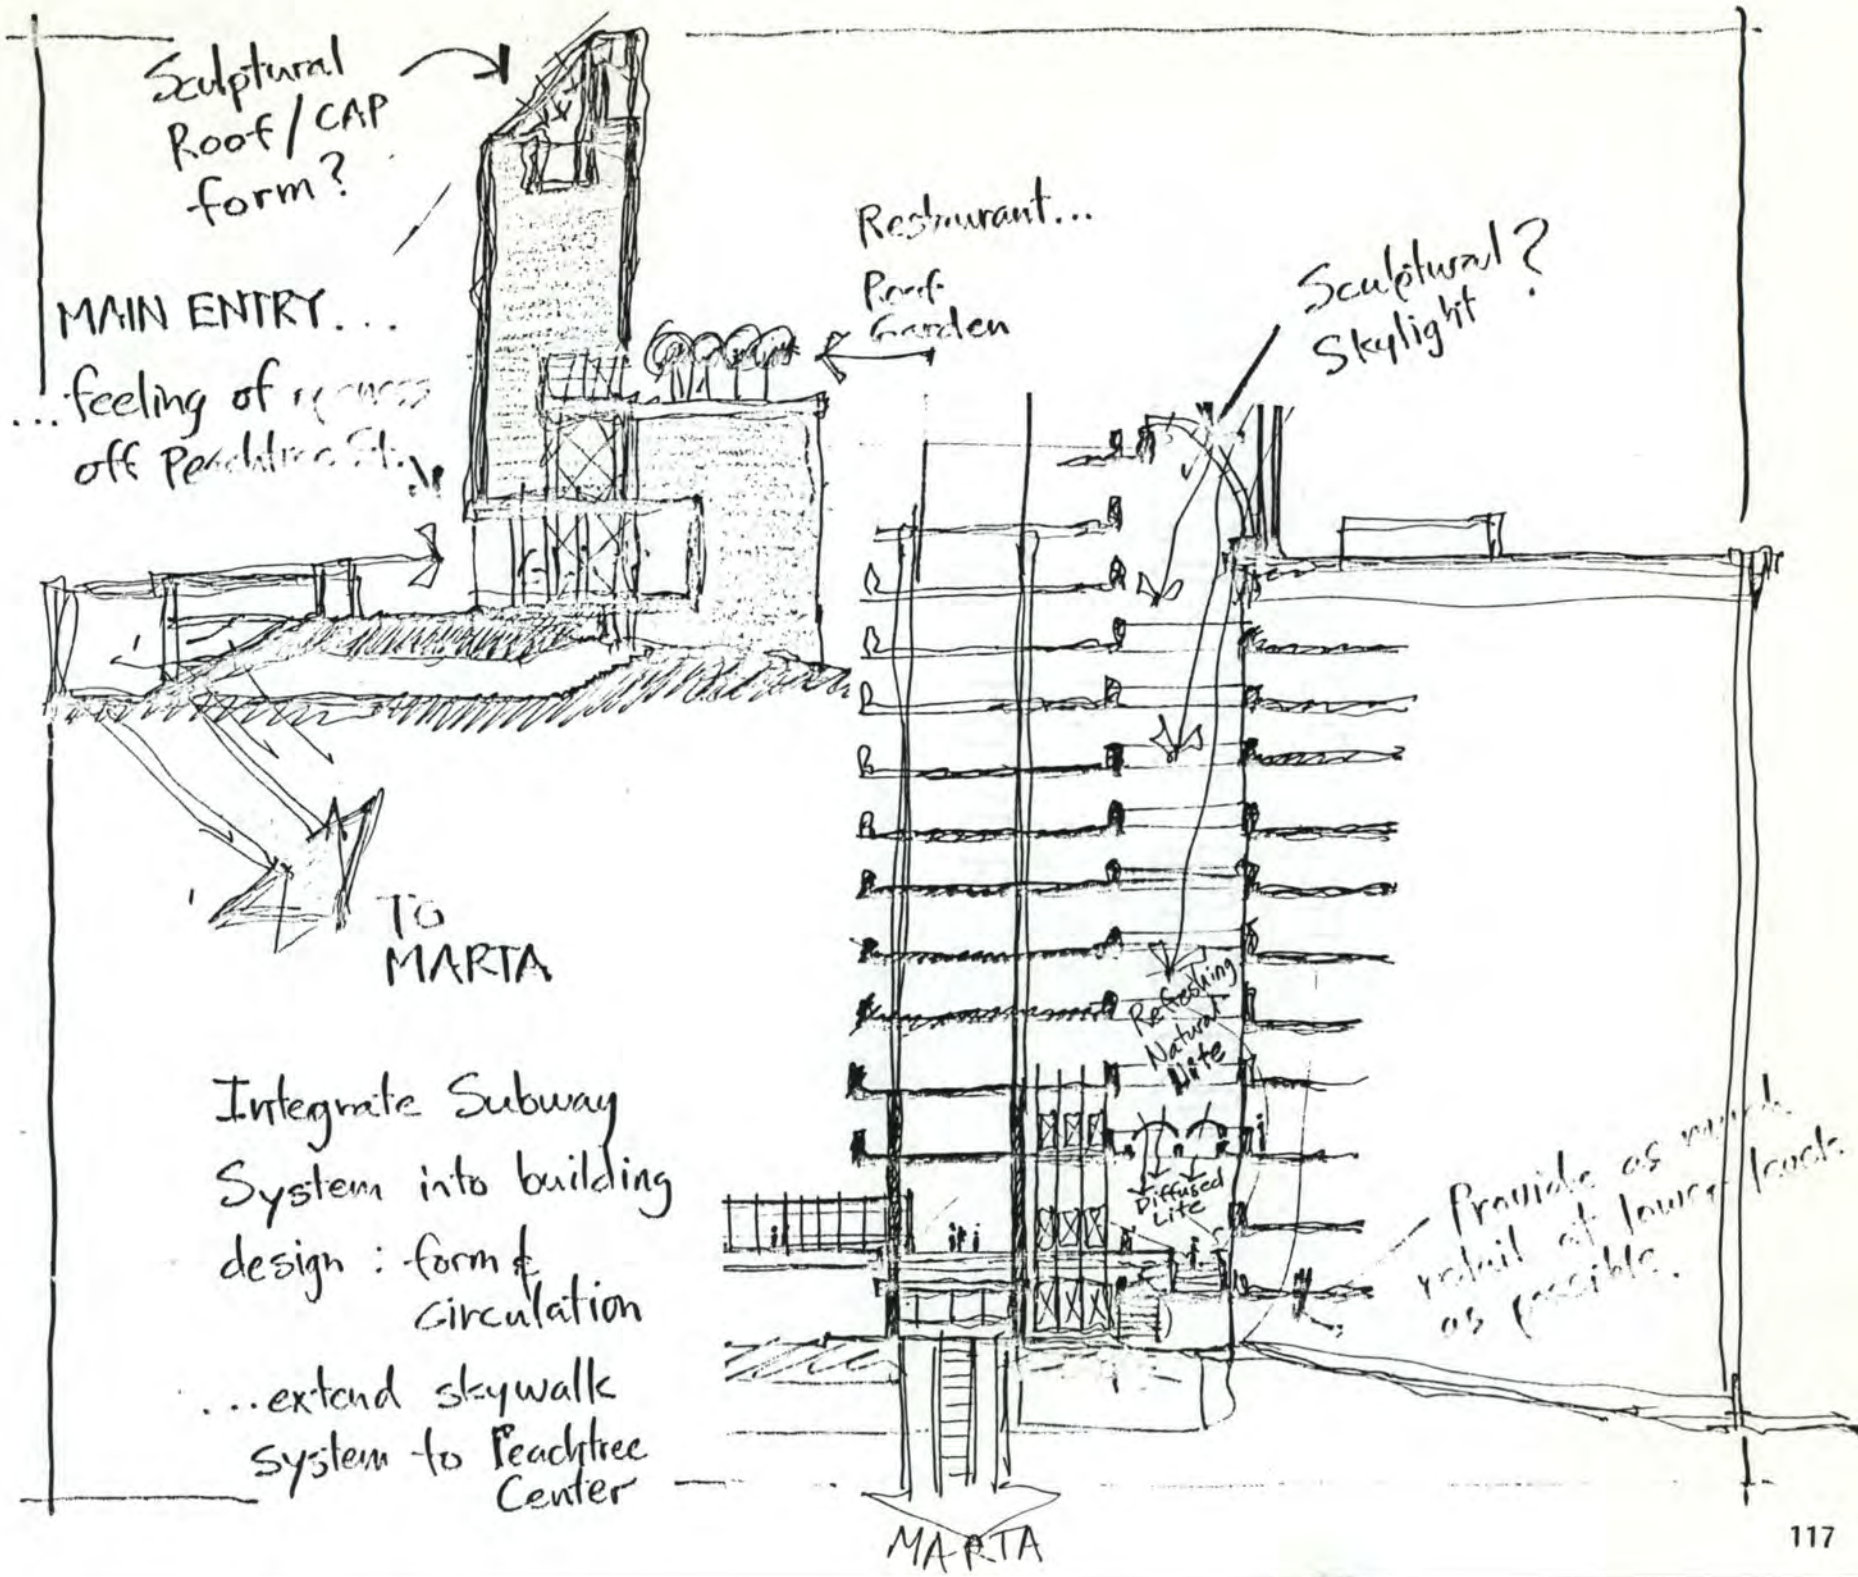 Sculptural
Roof / CAP
form?
MAIN ENTRY...
...feeling of
off Peachtree St.
Restaurant...
Roof
Garden
Sculptural?
Skylight
TO
MARTA
Refreshing
Natural
Lite
Diffused
Lite
Integrate Subway
System into building
design : form &
circulation
...extend skywalk
system to Peachtree
Center
Provide as much
retail at lower levels
as possible.
MARTA
117